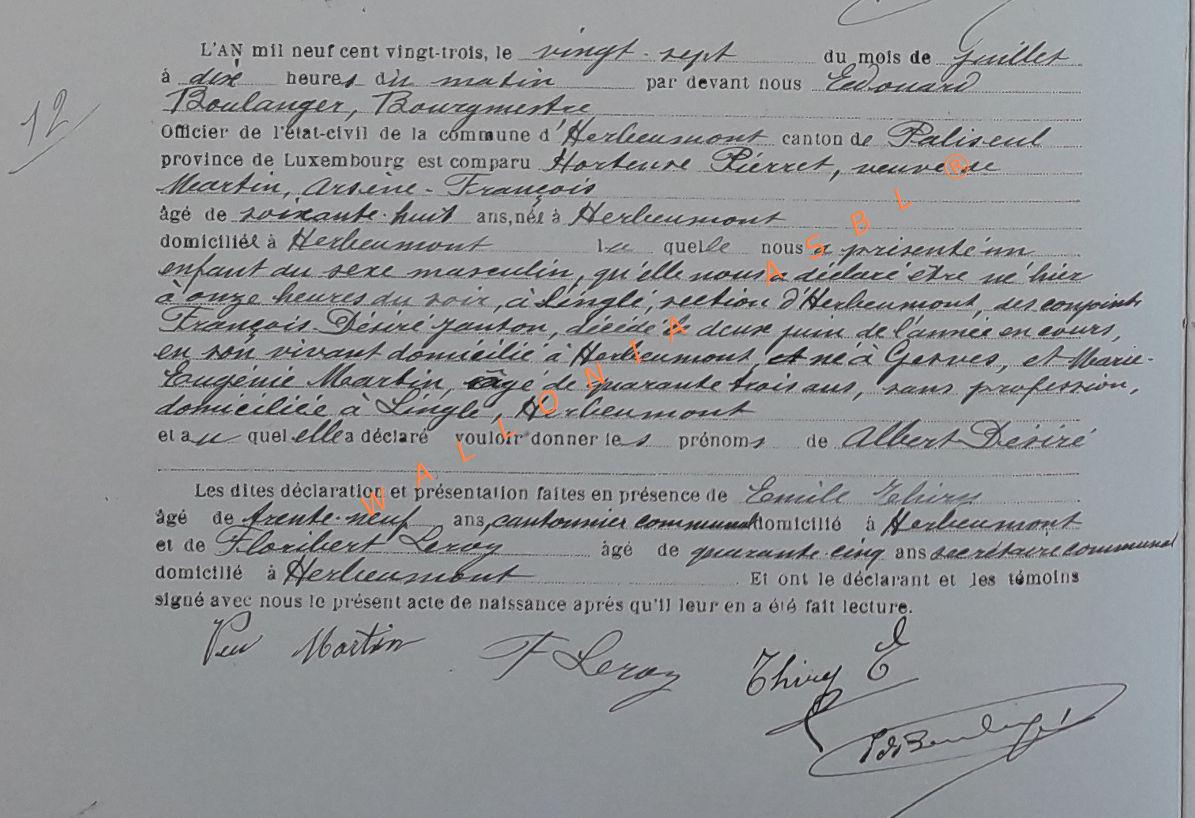 12
L'AN mil neuf cent vingt-trois, le vingt-sept du mois de juillet
à dix heures du matin par devant nous Edouard
Boulanger, Bourgmestre
Officier de l'état-civil de la commune d'Herbeumont canton de Paliseul
province de Luxembourg est comparu Hortense Pierret, veuve de
Martin, Arsène-François
âgé de soixante-huit ans, née à Herbeumont
domiciliée à Herbeumont la quelle nous a présenté un
enfant du sexe masculin, qu'elle nous a déclaré être né hier
à onze heures du soir, à Linglé, section d'Herbeumont, des conjoints
François-Désiré Janton, décédé le deux juin de l'année en cours,
en son vivant domicilié à Herbeumont et né à Gesves, et Marie-
Eugénie Martin, âgé de quarante trois ans, sans profession,
domiciliée à Linglé, Herbeumont
et au quel elle a déclaré vouloir donner les prénoms de Albert Désiré
Les dites déclaration et présentation faites en présence de Emile Thiry
âgé de trente-neuf ans, cantonnier communal domicilié à Herbeumont
et de Floribert Leroy âgé de quarante-cinq ans secrétaire communal
domicilié à Herbeumont Et ont le déclarant et les témoins
signé avec nous le présent acte de naissance après qu'il leur en a été fait lecture.
Veu Martin F Leroy Thiry E
Ed Boulanger
WALLONIA ASBL ®